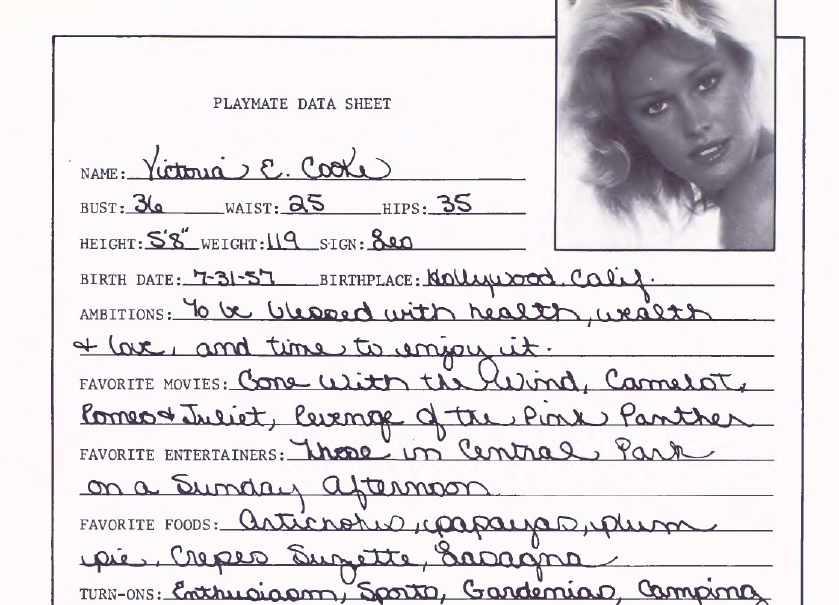 PLAYMATE DATA SHEET
NAME: Victoria E. Cooke
BUST: 36 WAIST: 25 HIPS: 35
HEIGHT: 5'8" WEIGHT: 119 SIGN: Leo
BIRTH DATE: 7-31-57 BIRTHPLACE: Hollywood, Calif.
AMBITIONS: To be blessed with health, wealth
+ love, and time to enjoy it.
FAVORITE MOVIES: Gone With the Wind, Camelot,
Romeo + Juliet, Revenge of the Pink Panther
FAVORITE ENTERTAINERS: Those in Central Park
on a Sunday Afternoon
FAVORITE FOODS: Artichokes, papayas, plum
pie, Crepes Suzette, Lasagna
TURN-ONS: Enthusiasm, Sports, Gardenias, Camping